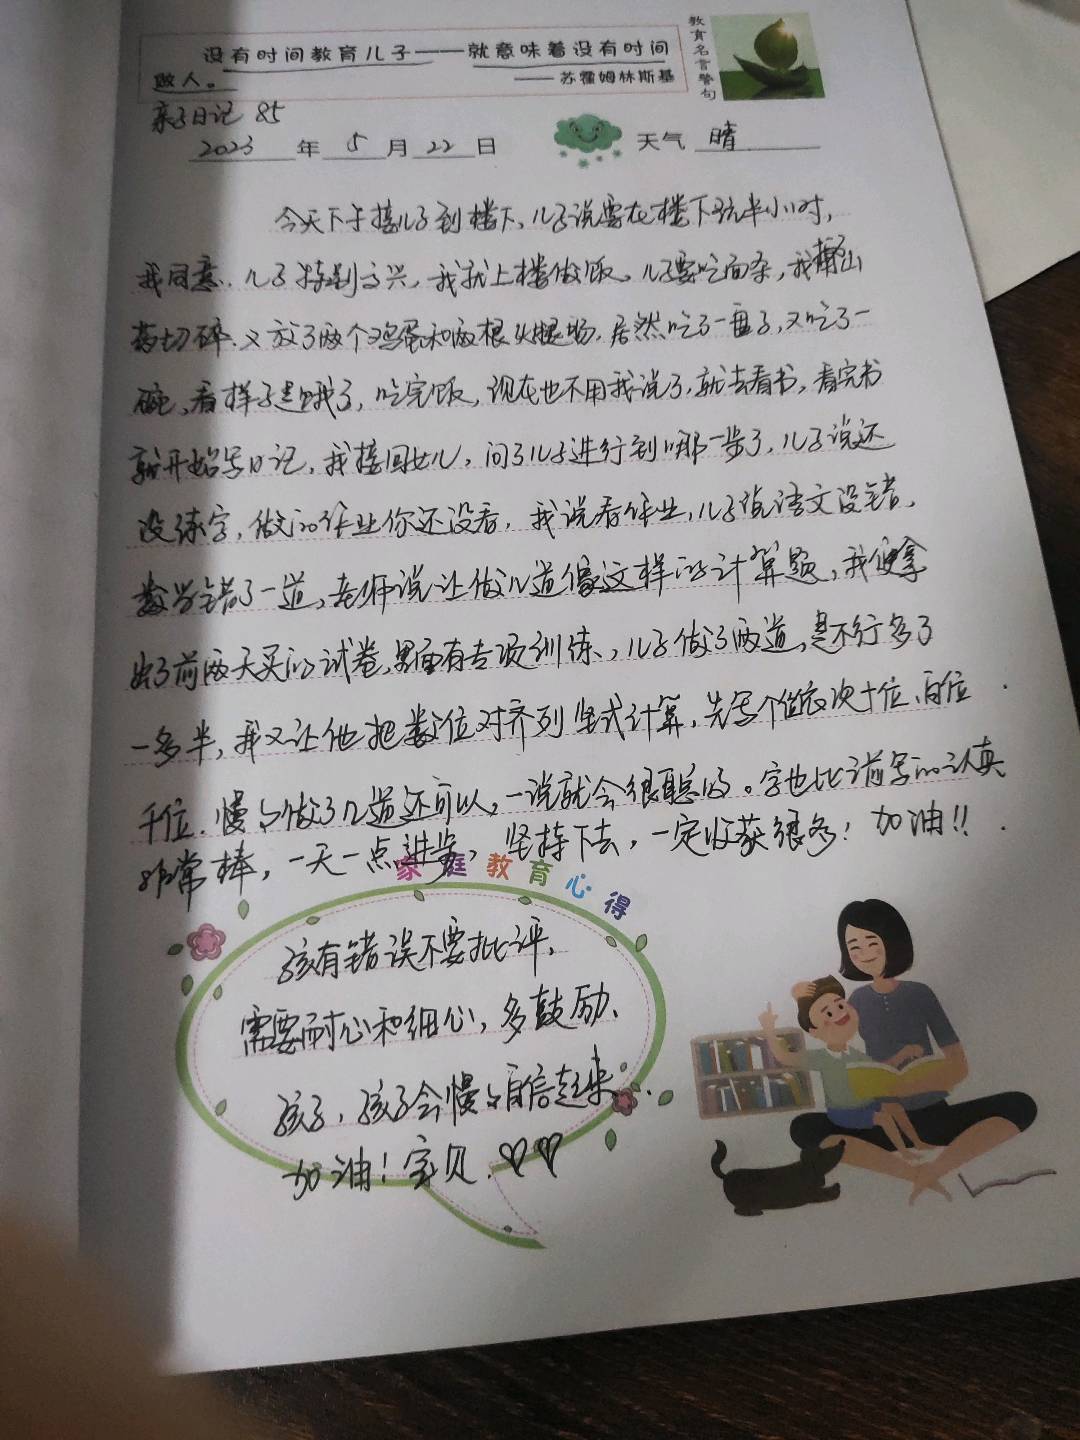 没有时间教育儿子——就意味着没有时间
做人。
——苏霍姆林斯基
教育名言警句
亲子日记 85
2023年5月22日 天气 晴
今天下午接儿子到楼下,儿子说要在楼下玩半小时,
我同意,儿子特别高兴,我就上楼做饭。儿子要吃面条,我把山
药切碎,又放了两个鸡蛋和两根火腿肠,居然吃了一盘子,又吃了一
碗,看样子是饿了,吃完饭,现在也不用我说了,就去看书,看完书
就开始写日记,我接回女儿,问了儿子进行到哪一步了,儿子说还
没练字,做的作业你还没看,我说看作业,儿子说语文没错,
数学错了一道,老师说让做几道像这样的计算题,我便拿
出了前两天买的试卷,里面有专项训练,儿子做了两道,是不行多了
一多半,我又让他把数位对齐列竖式计算,先写个位依次十位、百位
千位,慢慢做了几道还可以,一说就会很聪的。字也比以前写的认真
非常棒,一天一点进步,坚持下去,一定收获很多!加油!!
家庭教育心得
孩有错误不要批评,
需要耐心和细心,多鼓励、
孩子,孩子会慢慢自信起来..
加油!宝贝!♡♡